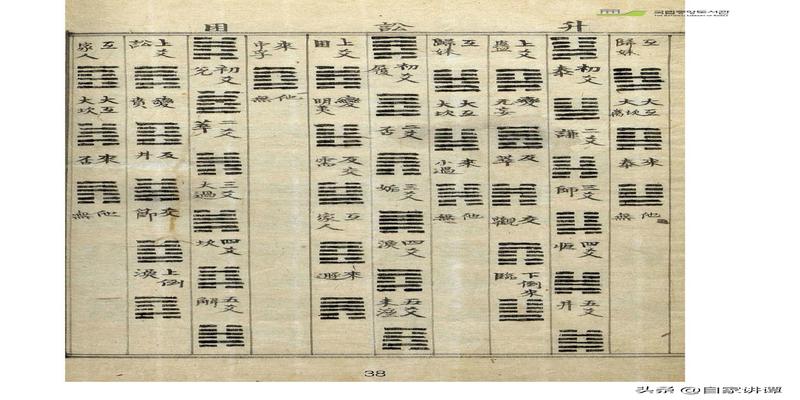 국립중앙도서관
THE NATIONAL LIBRARY OF KOREA
升
訟
困
互 歸妹
大互 大坎
來 泰
他 無
初爻 泰
二爻 謙
三爻 師
四爻 恒
五爻 井
上爻 蠱
變 无妄
反 萃
交 觀
下倒來 臨
互 歸妹
大互 大坎
來 小過
他 無
初爻 履
二爻 否
三爻 姤
四爻 渙
五爻 未濟
上爻 困
變 明夷
反交 需
互 家人
來 遯
來 中孚
他 無
初爻 兌
二爻 萃
三爻 大過
四爻 坎
五爻 解
上爻 訟
變 賁
反 井
交 節
上倒 渙
互 家人
大互 大坎
來 否
他 無
38
头条 @自家讲谭